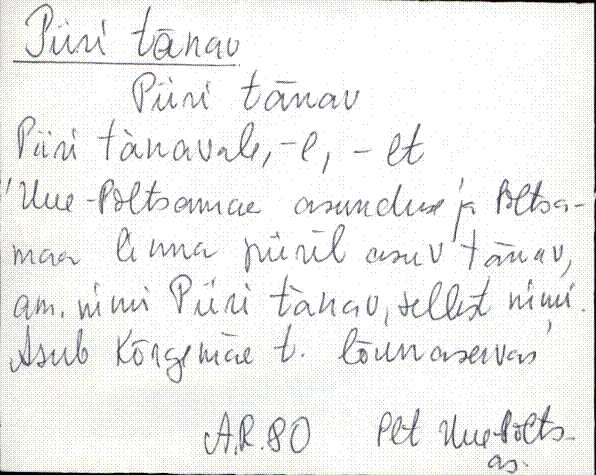 Piiri tänav
Piiri tänav
Piiri tänavale, -l, -lt
'Uue-Põltsamaa asunduse ja Põltsa-
maa linna piiril asuv tänav,
am. nimi Piiri tänav, sellest nimi.
Asub Kõrgemäe t. lõunaservas'
A.R. 80 Plt Uue-Põlts.
as.